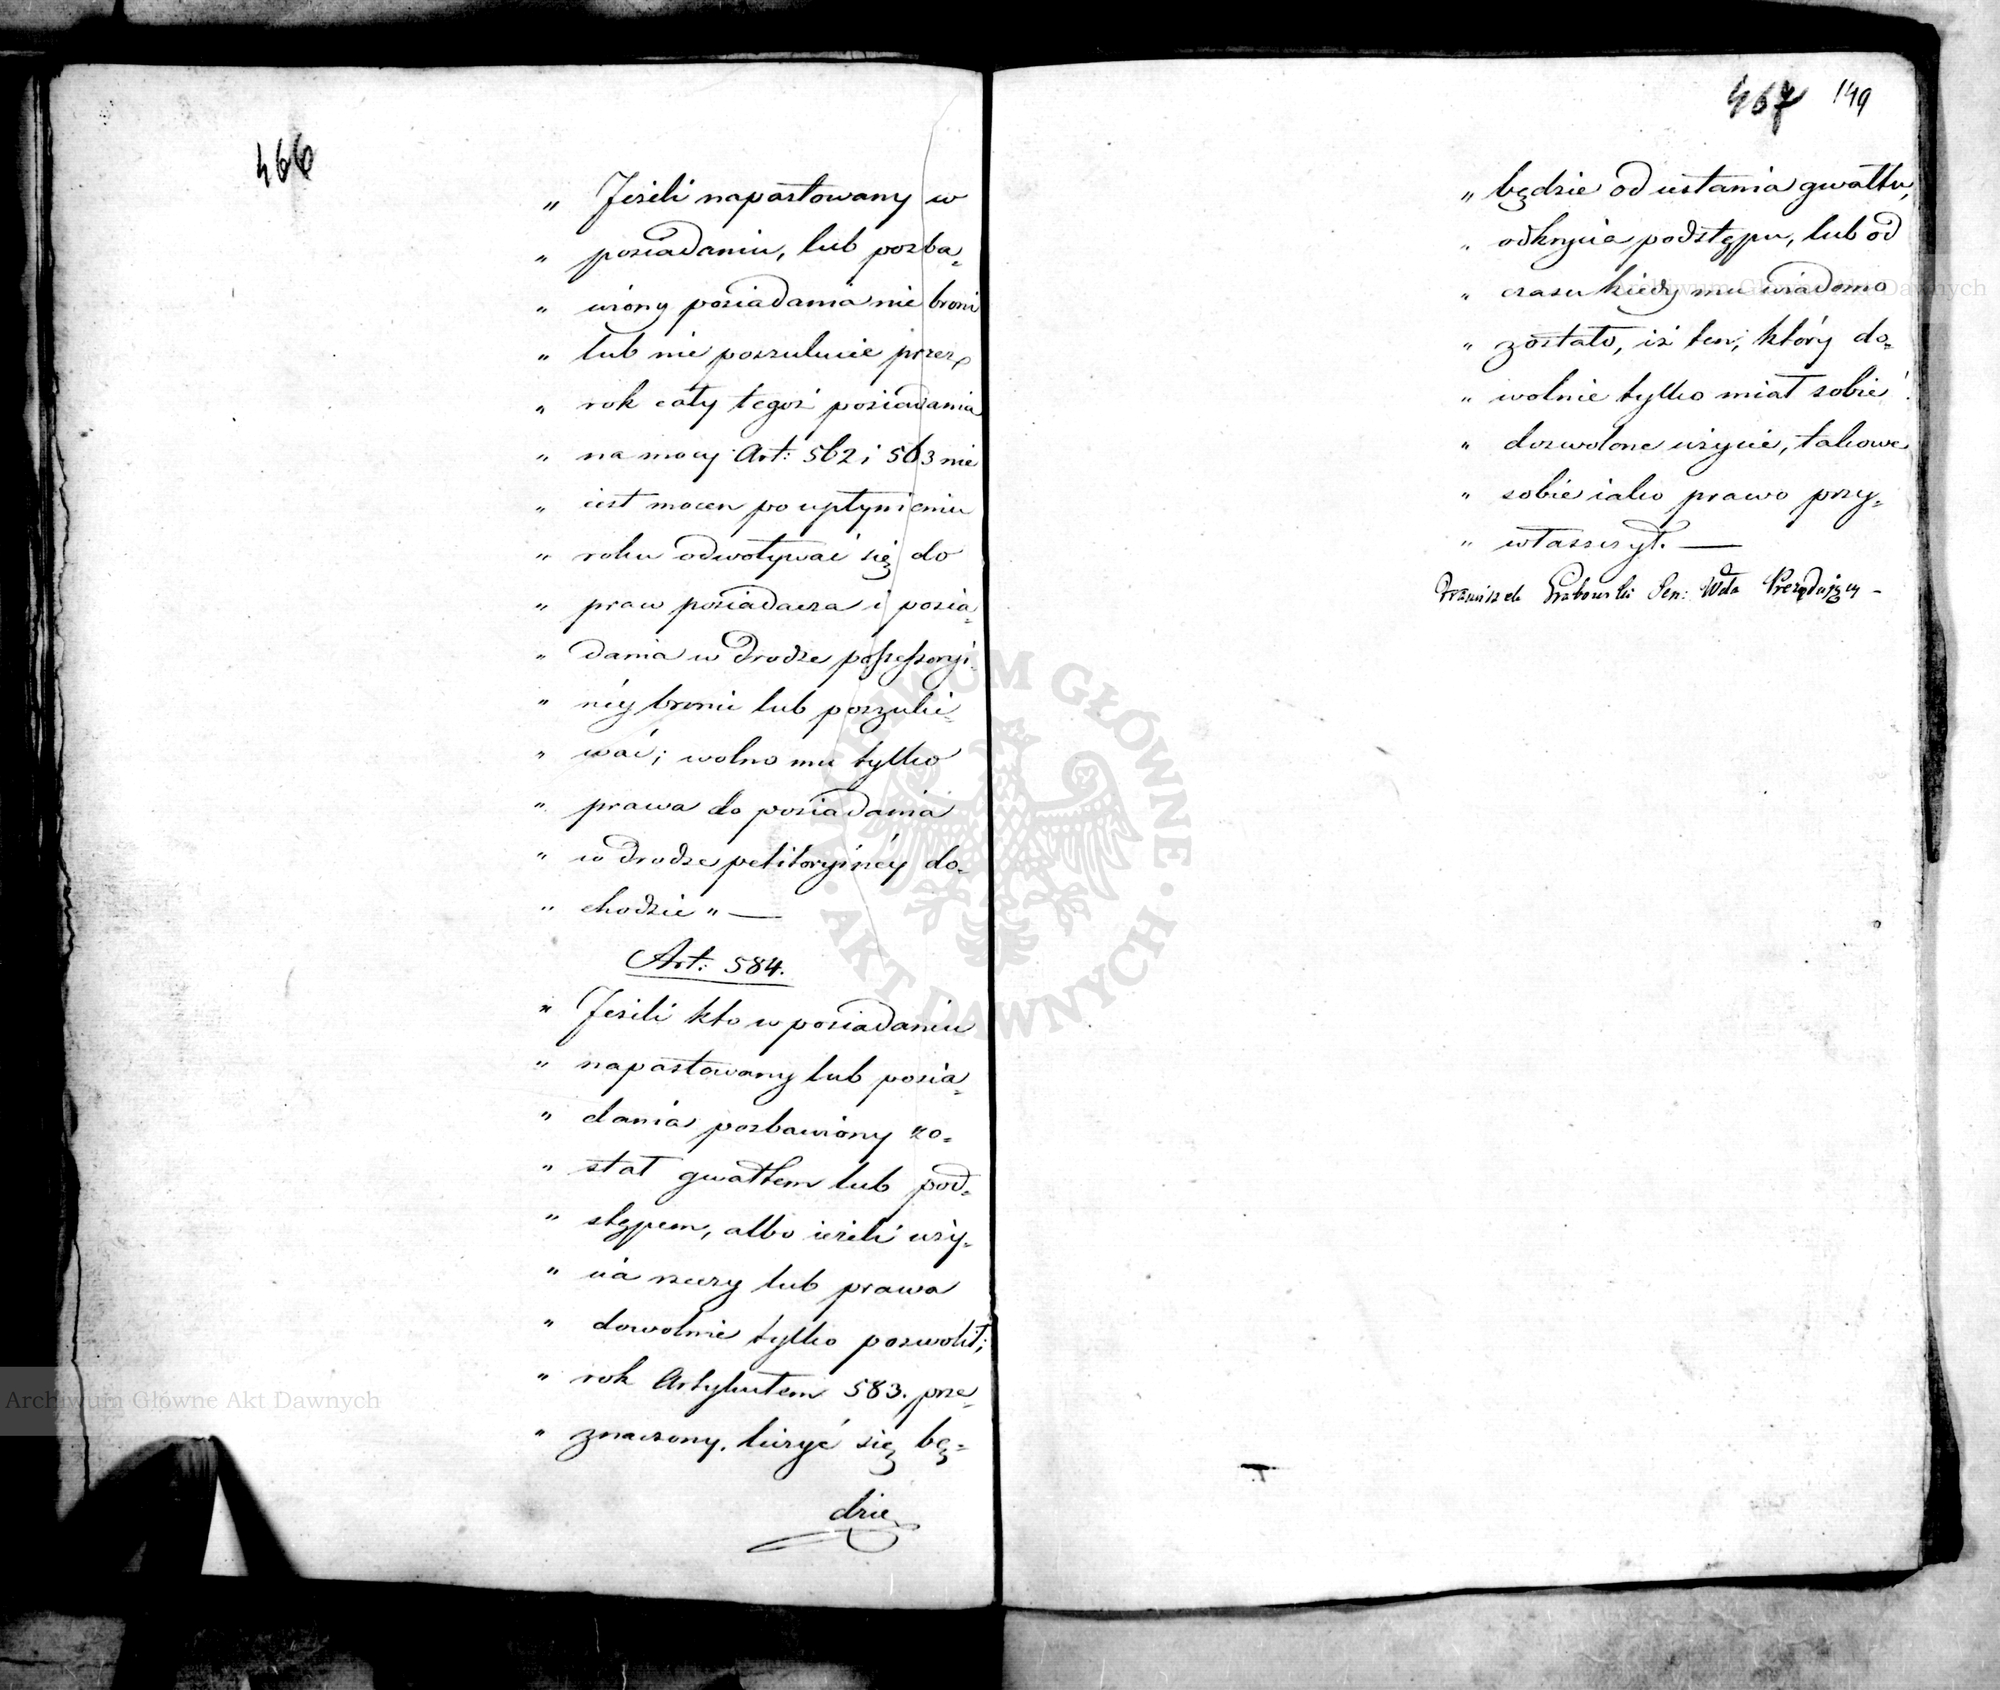 466
„ Jeżeli napastowany w
„ posiadaniu, lub pozba„
„ wiony posiadania nie broni
„ lub nie poszukuie przez
„ rok cały tegoż posiadania
„ na mocy Art: 562 i 563 nie
„ iest mocen po upłynieniu
„ roku odwoływać się do
„ praw posiadacza i posia„
„ dania w drodze possessoryi„
„ néy bronić lub poszuki„
„ wać; wolno mu tylko
„ prawa do posiadania
„ w drodze petitoryinéy do„
„ chodzić „ —
Art: 584.
„ Jeżeli kto w posiadaniu
„ napastowany lub posia„
„ dania pozbawiony zo„
„ stał gwałtem lub pod„
„ stępem, albo ieżeli uży„
„ cia rzeczy lub prawa
„ dowolnie tylko pozwolił;
„ rok Artykułem 583. prze„
„ znaczony, liczyć się bę„
dzie
467 149
„ będzie od ustania gwałtu,
„ odkrycia podstępu, lub od
„ czasu kiedy mu wiadomo
„ zostało, iż ten, który do„
„ wolnie tylko miał sobie
„ dozwolone użycie, takowe
„ sobie iako prawo przy„
„ własczył. —
Franciszek Grabowski Sen: Wda Prezyduiący -
ARCHIWUM GŁÓWNE AKT DAWNYCH
Archiwum Główne Akt Dawnych
Archiwum Główne Akt Dawnych